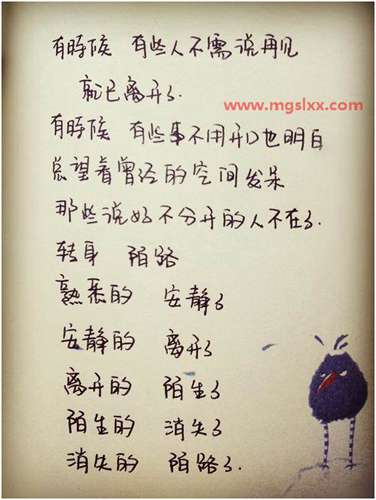 有时候 有些人不需说再见
就已离开了.
www.mgslxx.com
有时候 有些事不用开口也明白
总望着曾经的空间发呆
那些说好不分开的人不在了.
转身 陌路
熟悉的 安静了
安静的 离开了
离开的 陌生了
陌生的 消失了
消失的 陌路了.